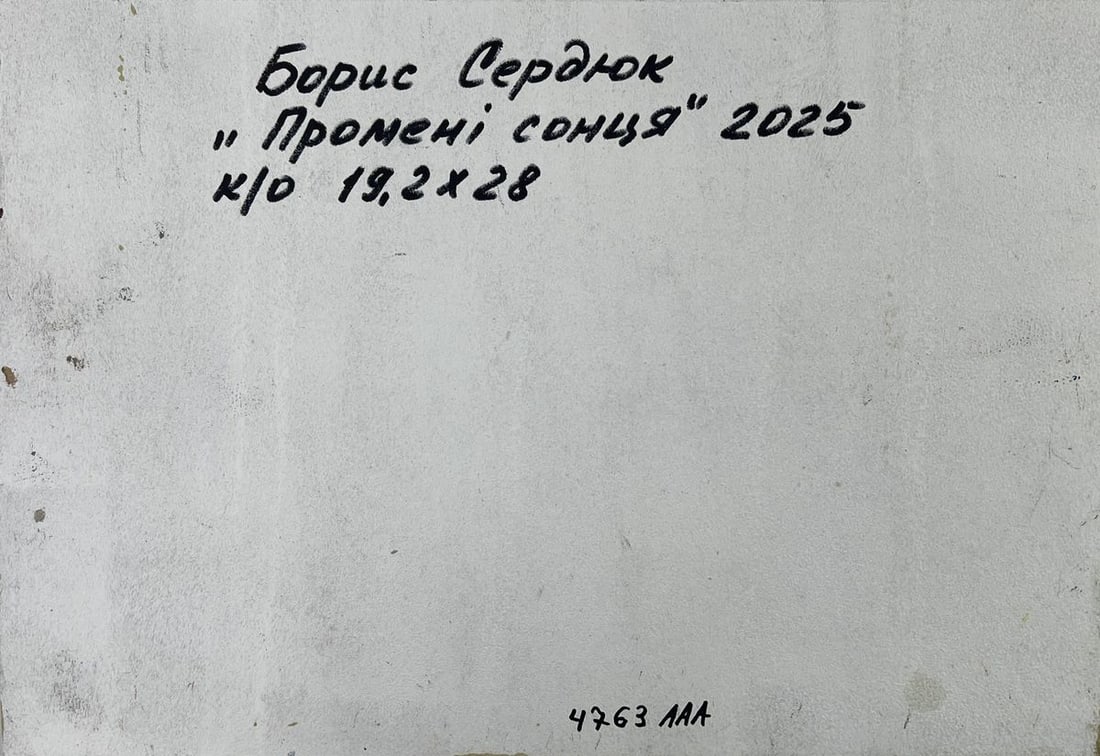 Борис Сердюк
„Промені сонця" 2025
к/о 19,2 х 28
4763 ААА